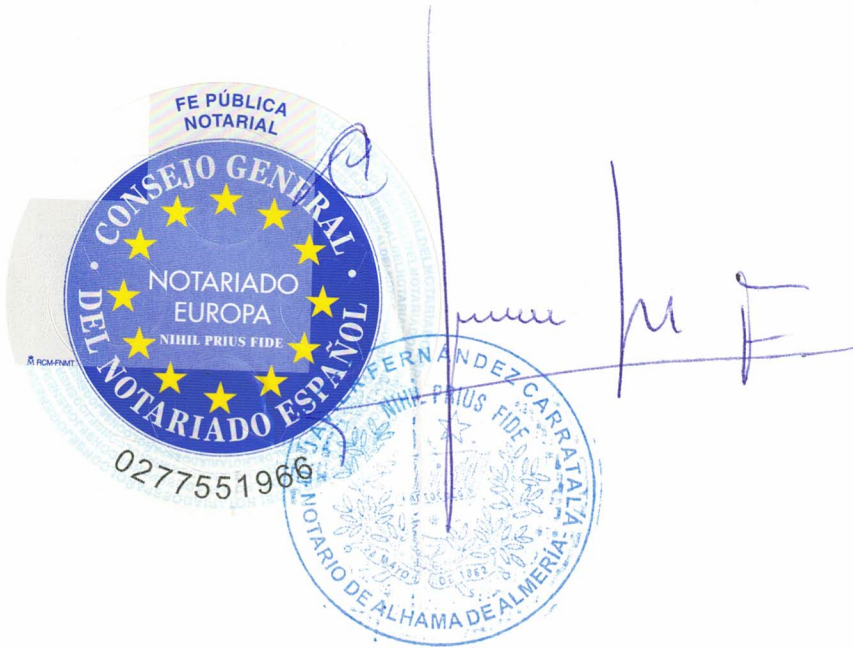 FE PÚBLICA
NOTARIAL
CONSEJO GENERAL
DEL NOTARIADO ESPAÑOL
NOTARIADO
EUROPA
NIHIL PRIUS FIDE
RCM-FNMT
0277551966
JAVIER FERNÁNDEZ CARRATALÁ
NIHIL PRIUS FIDE
28 MAYO DE 1862
NOTARIO DE ALHAMA DE ALMERÍA